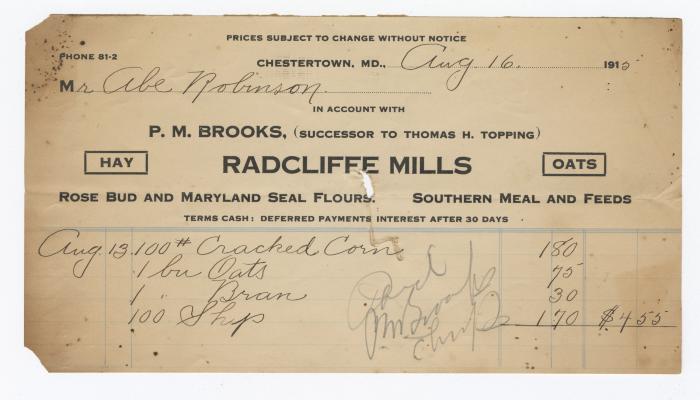 PRICES SUBJECT TO CHANGE WITHOUT NOTICE
PHONE 81-2
CHESTERTOWN, MD., Aug 16. 1915
Mr Abe Robinson
IN ACCOUNT WITH
P. M. BROOKS, (SUCCESSOR TO THOMAS H. TOPPING)
HAY RADCLIFFE MILLS OATS
ROSE BUD AND MARYLAND SEAL FLOURS. SOUTHERN MEAL AND FEEDS
TERMS CASH: DEFERRED PAYMENTS INTEREST AFTER 30 DAYS
Aug 13. 100# Cracked Corn 180
1 bu Oats 75
1 " Bran 30
100 Ship 170 $4.55
Paid
PM Brooks